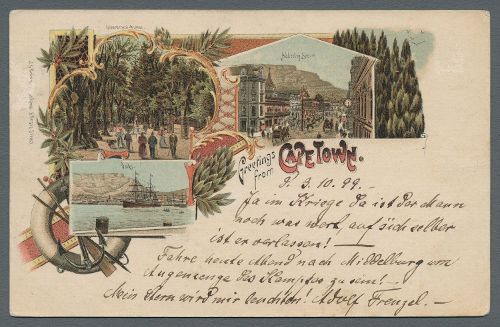 Government Avenue.
Adderley Street
Docks
Greetings
from
CAPE TOWN.
d. 3. 10. 99.
Ja im Kriege da ist der Mann
noch was wert, auf sich selber
ist er verlassen! —
Fahre heute Abend nach Middelburg um
Augenzeuge des Kampfes zu sein! —
Mein Stern wird mir leuchten! Adolf Frenzel. —